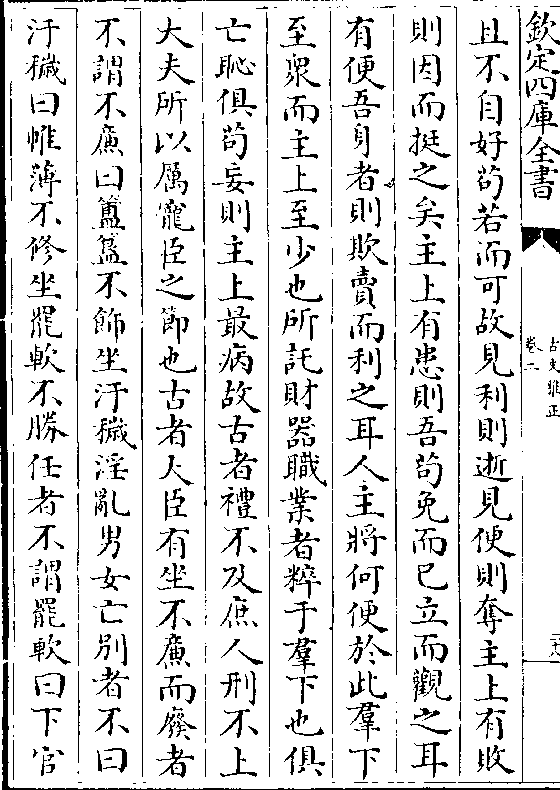 欽定四庫全書
古文雅正
卷二
且不自好苟若而可故見利則逝見便則奪主上有敗
則因而挺之矣主上有患則吾苟免而已立而觀之耳
有便吾身者則欺賣而利之耳人主將何便於此羣下
至衆而主上至少也所託財器職業者粹于羣下也俱
亡恥俱苟妄則主上最病故古者禮不及庶人刑不上
大夫所以厲寵臣之節也古者大臣有坐不廉而廢者
不謂不廉曰簠簋不飾坐汙穢淫亂男女亡别者不曰
汙穢曰帷薄不修坐罷軟不勝任者不謂罷軟曰下官